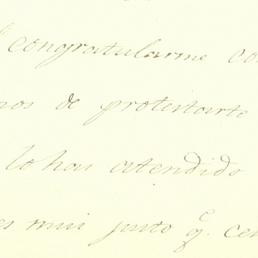 congratularme co
nos de protestarte
lo han atendido
es mui justo q.e cen